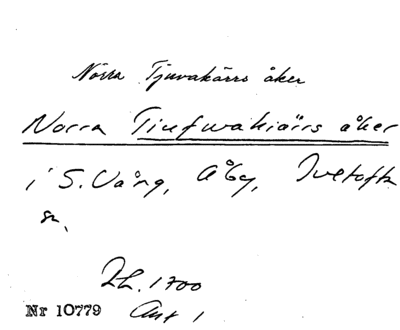 Norra Tjuvakärrs åker
Norra Tiufwakiärrs åker
i S. Vång, Åby, Ivetofta
sn.
Lh. 1700
Nr 10779 Akt 1